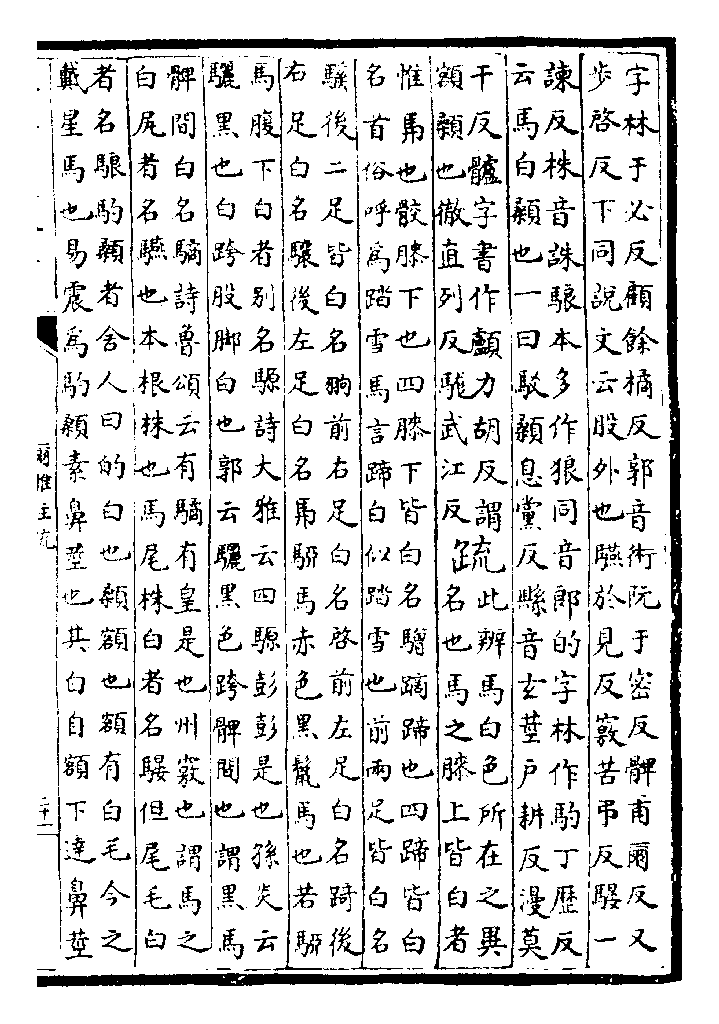 字林于必反顧餘橘反郭音術阮于密反髀甫爾反又
步啓反下同說文云股外也驠於見反竅苦弔反騴一
諫反株音誅駺本多作狼同音郎的字林作馰丁歷反
云馬白顙也一曰駮顙息黨反縣音玄莖戶耕反漫莫
干反髗字書作顱力胡反謂
額顙也徹直列反駹武江反
疏
此辨馬白色所在之異
名也馬之膝上皆白者
惟馬也骹膝下也四膝下皆白名驓蹢蹄也四蹄皆白
名首俗呼爲踏雪馬言蹄白似踏雪也前兩足皆白名
騱後二足皆白名翑前右足白名啓前左足白名踦後
右足白名驤後左足白名馵駵馬赤色黑鬣馬也若駵
馬腹下白者別名騵詩大雅云四騵彭彭是也孫炎云
驪黑也白跨股脚白也郭云驪黑色跨髀間也謂黑馬
髀間白名驈詩魯頌云有驈有皇是也州竅也謂馬之
白尻者名驠也本根株也馬尾株白者名騴但尾毛白
者名駺馰顙者舍人曰的白也顙額也額有白毛今之
戴星馬也易震爲馰顙素鼻莖也其白自額下達鼻莖